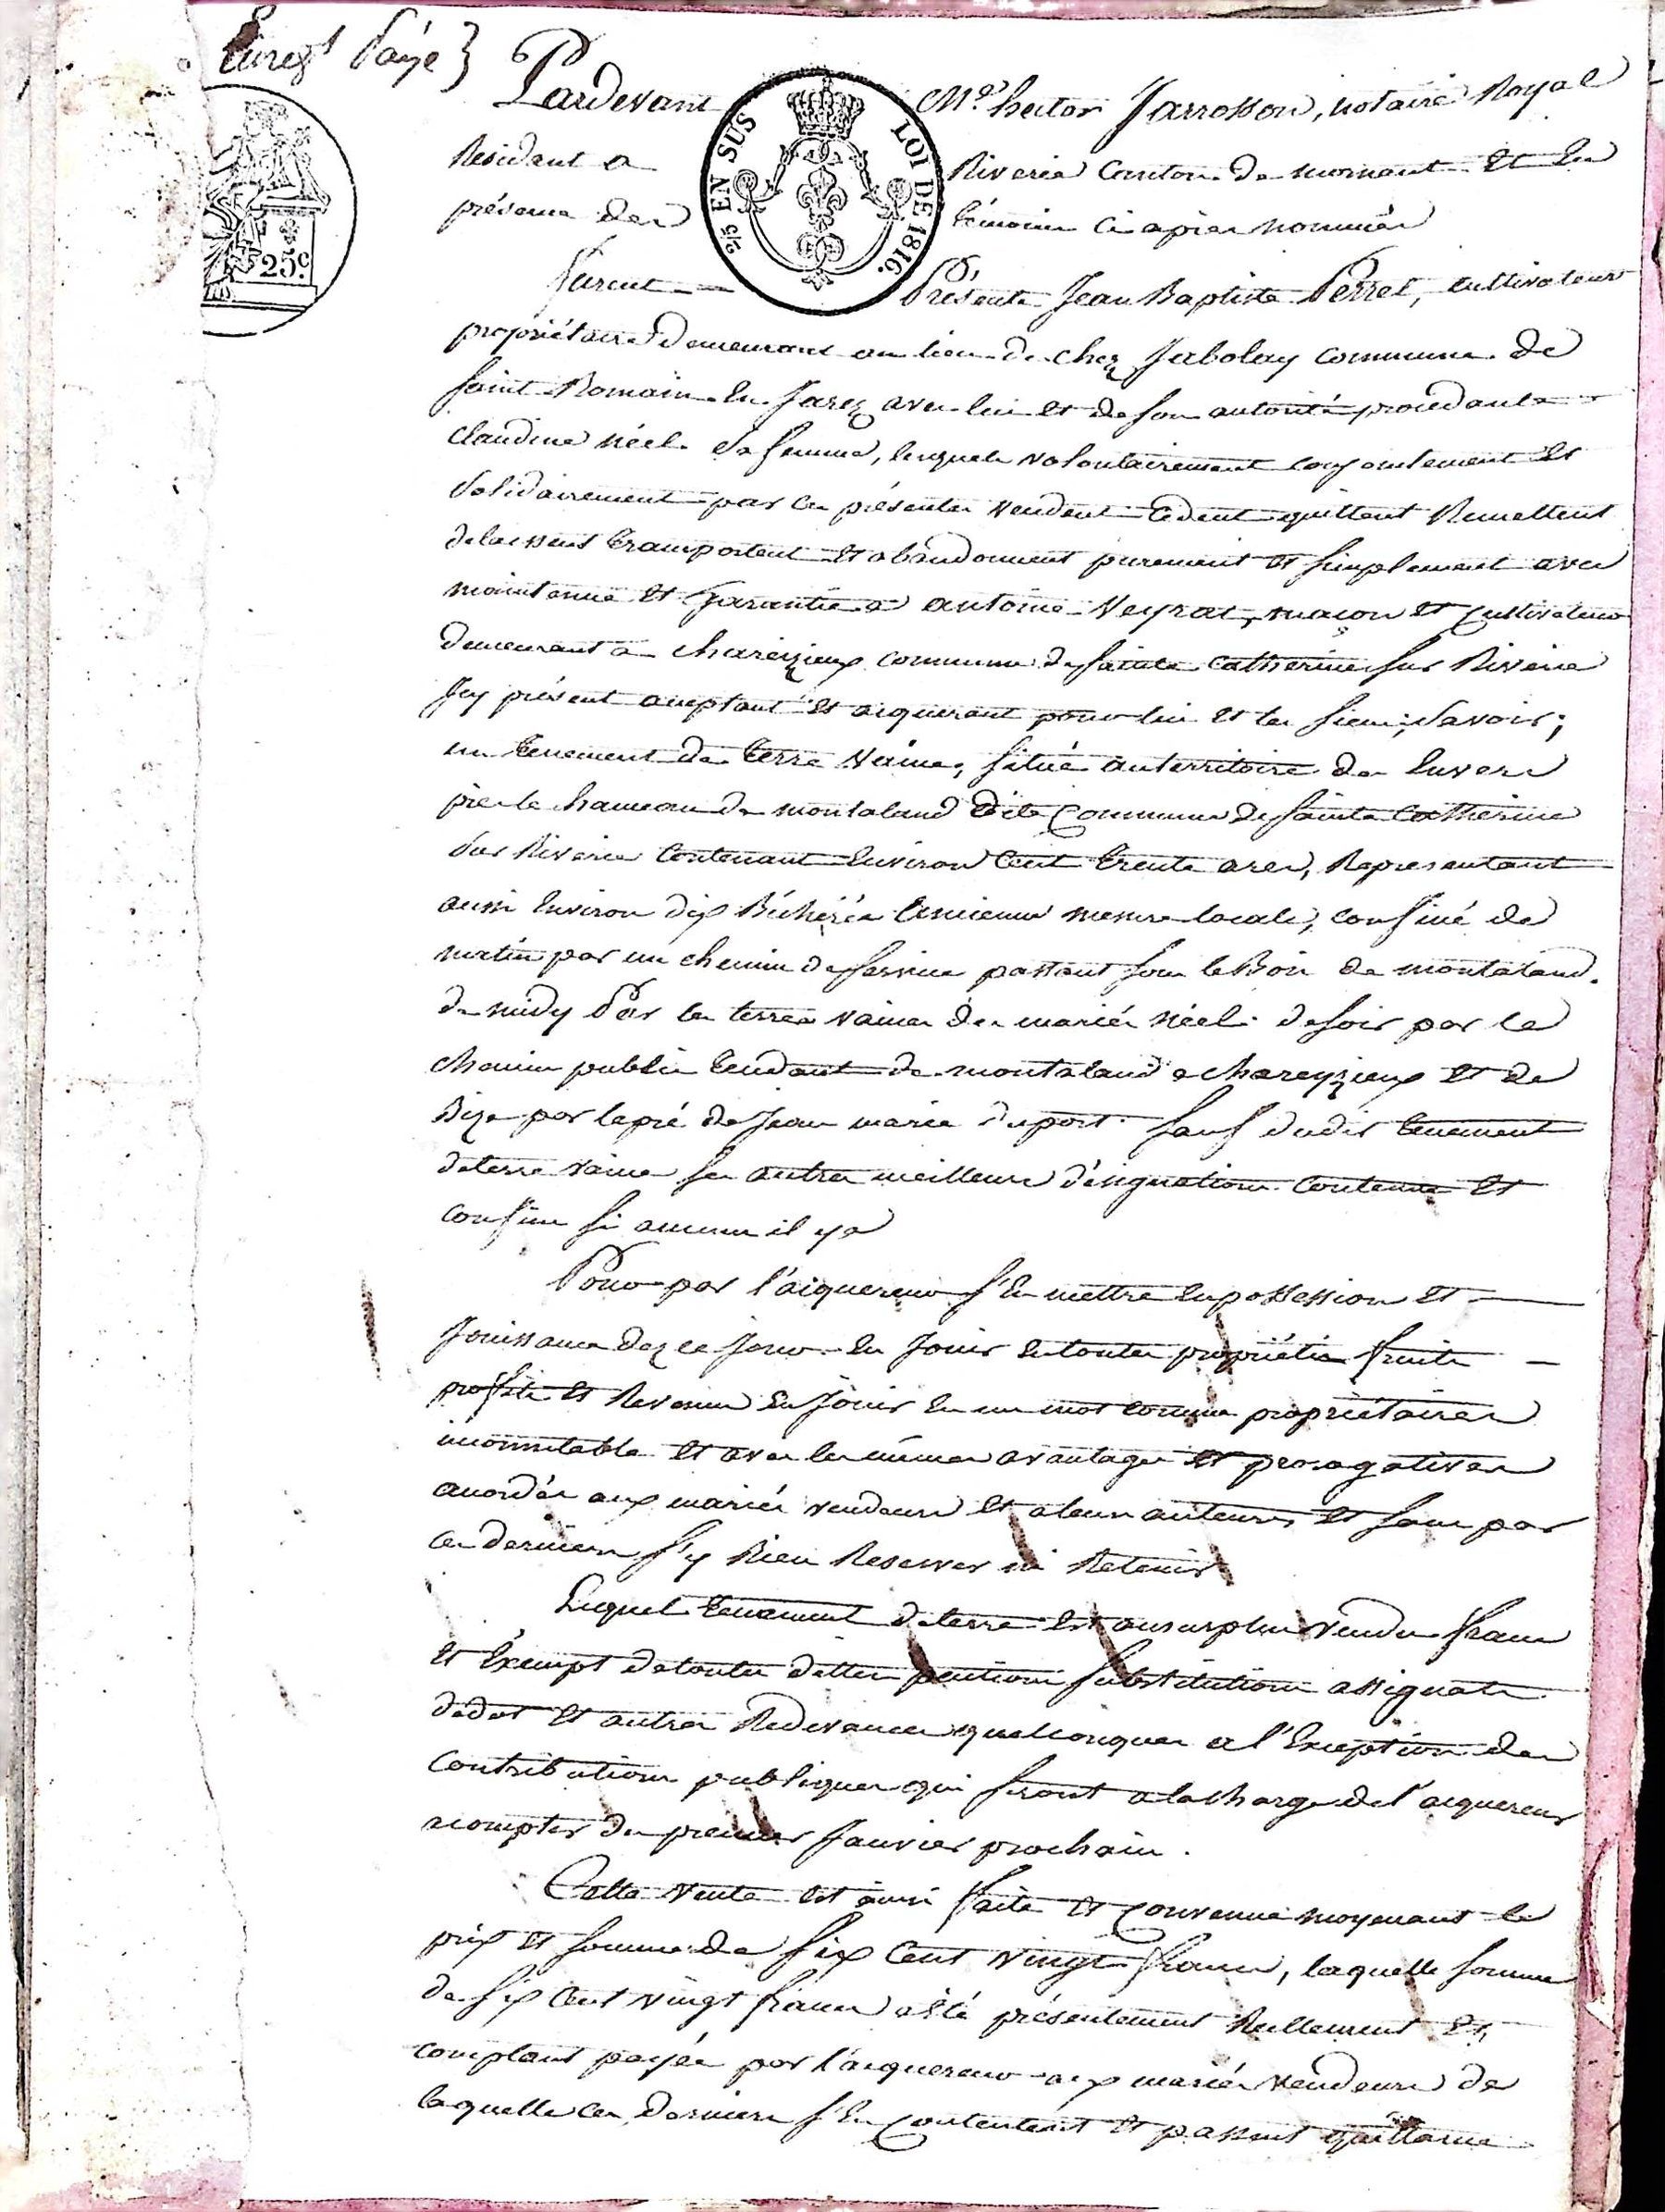 Enregt Payé }
Pardevant Me hector Jarrosson, notaire Royal
2/5 EN SUS LOI DE 1816.
25c.
Residant a Riverie Canton de mornant Et En
présence des témoins ci après nommés
Furent Présents Jean Baptiste Perret, cultivateur
propriétaire demeurant au lieu de chez Jabolay commune de
Saint Romain En Jarez avec lui et de son autorité procédante
Claudine Néel sa femme, lesquels volontairement conjointement et
Solidairement par ces présentes vendent cedent quittent Remettent
delaissent transportent Et abandonnent purement et simplement avec
maintenue Et garantie a antoine Veyrat, maçon Et Cultivateur
demeurant a chareizieux commune de Sainte Catherine sur Riverie
Icy présent aceptant Et aiquerant pour lui et les siens; Savoir;
un tenement de terre vaine, situé au territoire de Luvere
près le hameau de montaland dite Commune de Sainte Catherine
sur Riverie Contenant Environ Cent trente ares, Representant
aussi Environ dix Bicherées ancienne mesure locale, confiné de
matin par un chemin de service passant sous le Bois de montaland.
de midy Par les terres vaines des mariés Néel. de soir par le
chemin public tendant de montaland a chareyzieux et de
Bize par le pré de Jean marie Duport. sauf dudit tenement
de terre vaine ses autres meilleures désignations contenue et
confins si aucuns il y a
Pour par l'aiquereur s'En mettre En possession Et
Jouissance dez ce jour En Jouir En toutes propriétés fruits
profits Et Revenus En Jouir En un mot comme propriétaires
incommutable Et avec les mêmes avantages et prerogatives
acordés aux mariés vendeurs Et a leurs auteurs, Et sans par
ces derniers s'y Rien Reserver ni Retenir
Lequel tenement de terre Est au surplus vendu franc
Et Exempt de toutes dettes pentions substitutions assignats
de dot Et autres Redevances quelconques a l'Exception des
Contributions publiques qui seront a la charge de l'aiquereur
a compter du premier Janvier prochain.
Cette vente Est ainsi faite Et Convenue moyenant le
prix Et somme de six Cent vingt francs, laquelle somme
de six Cent vingt francs a Eté présentement Reellement Et
comptant payée par l'aiquereur aux mariés vendeurs de
laquelle ces derniers s'En Contentent Et passent quittance